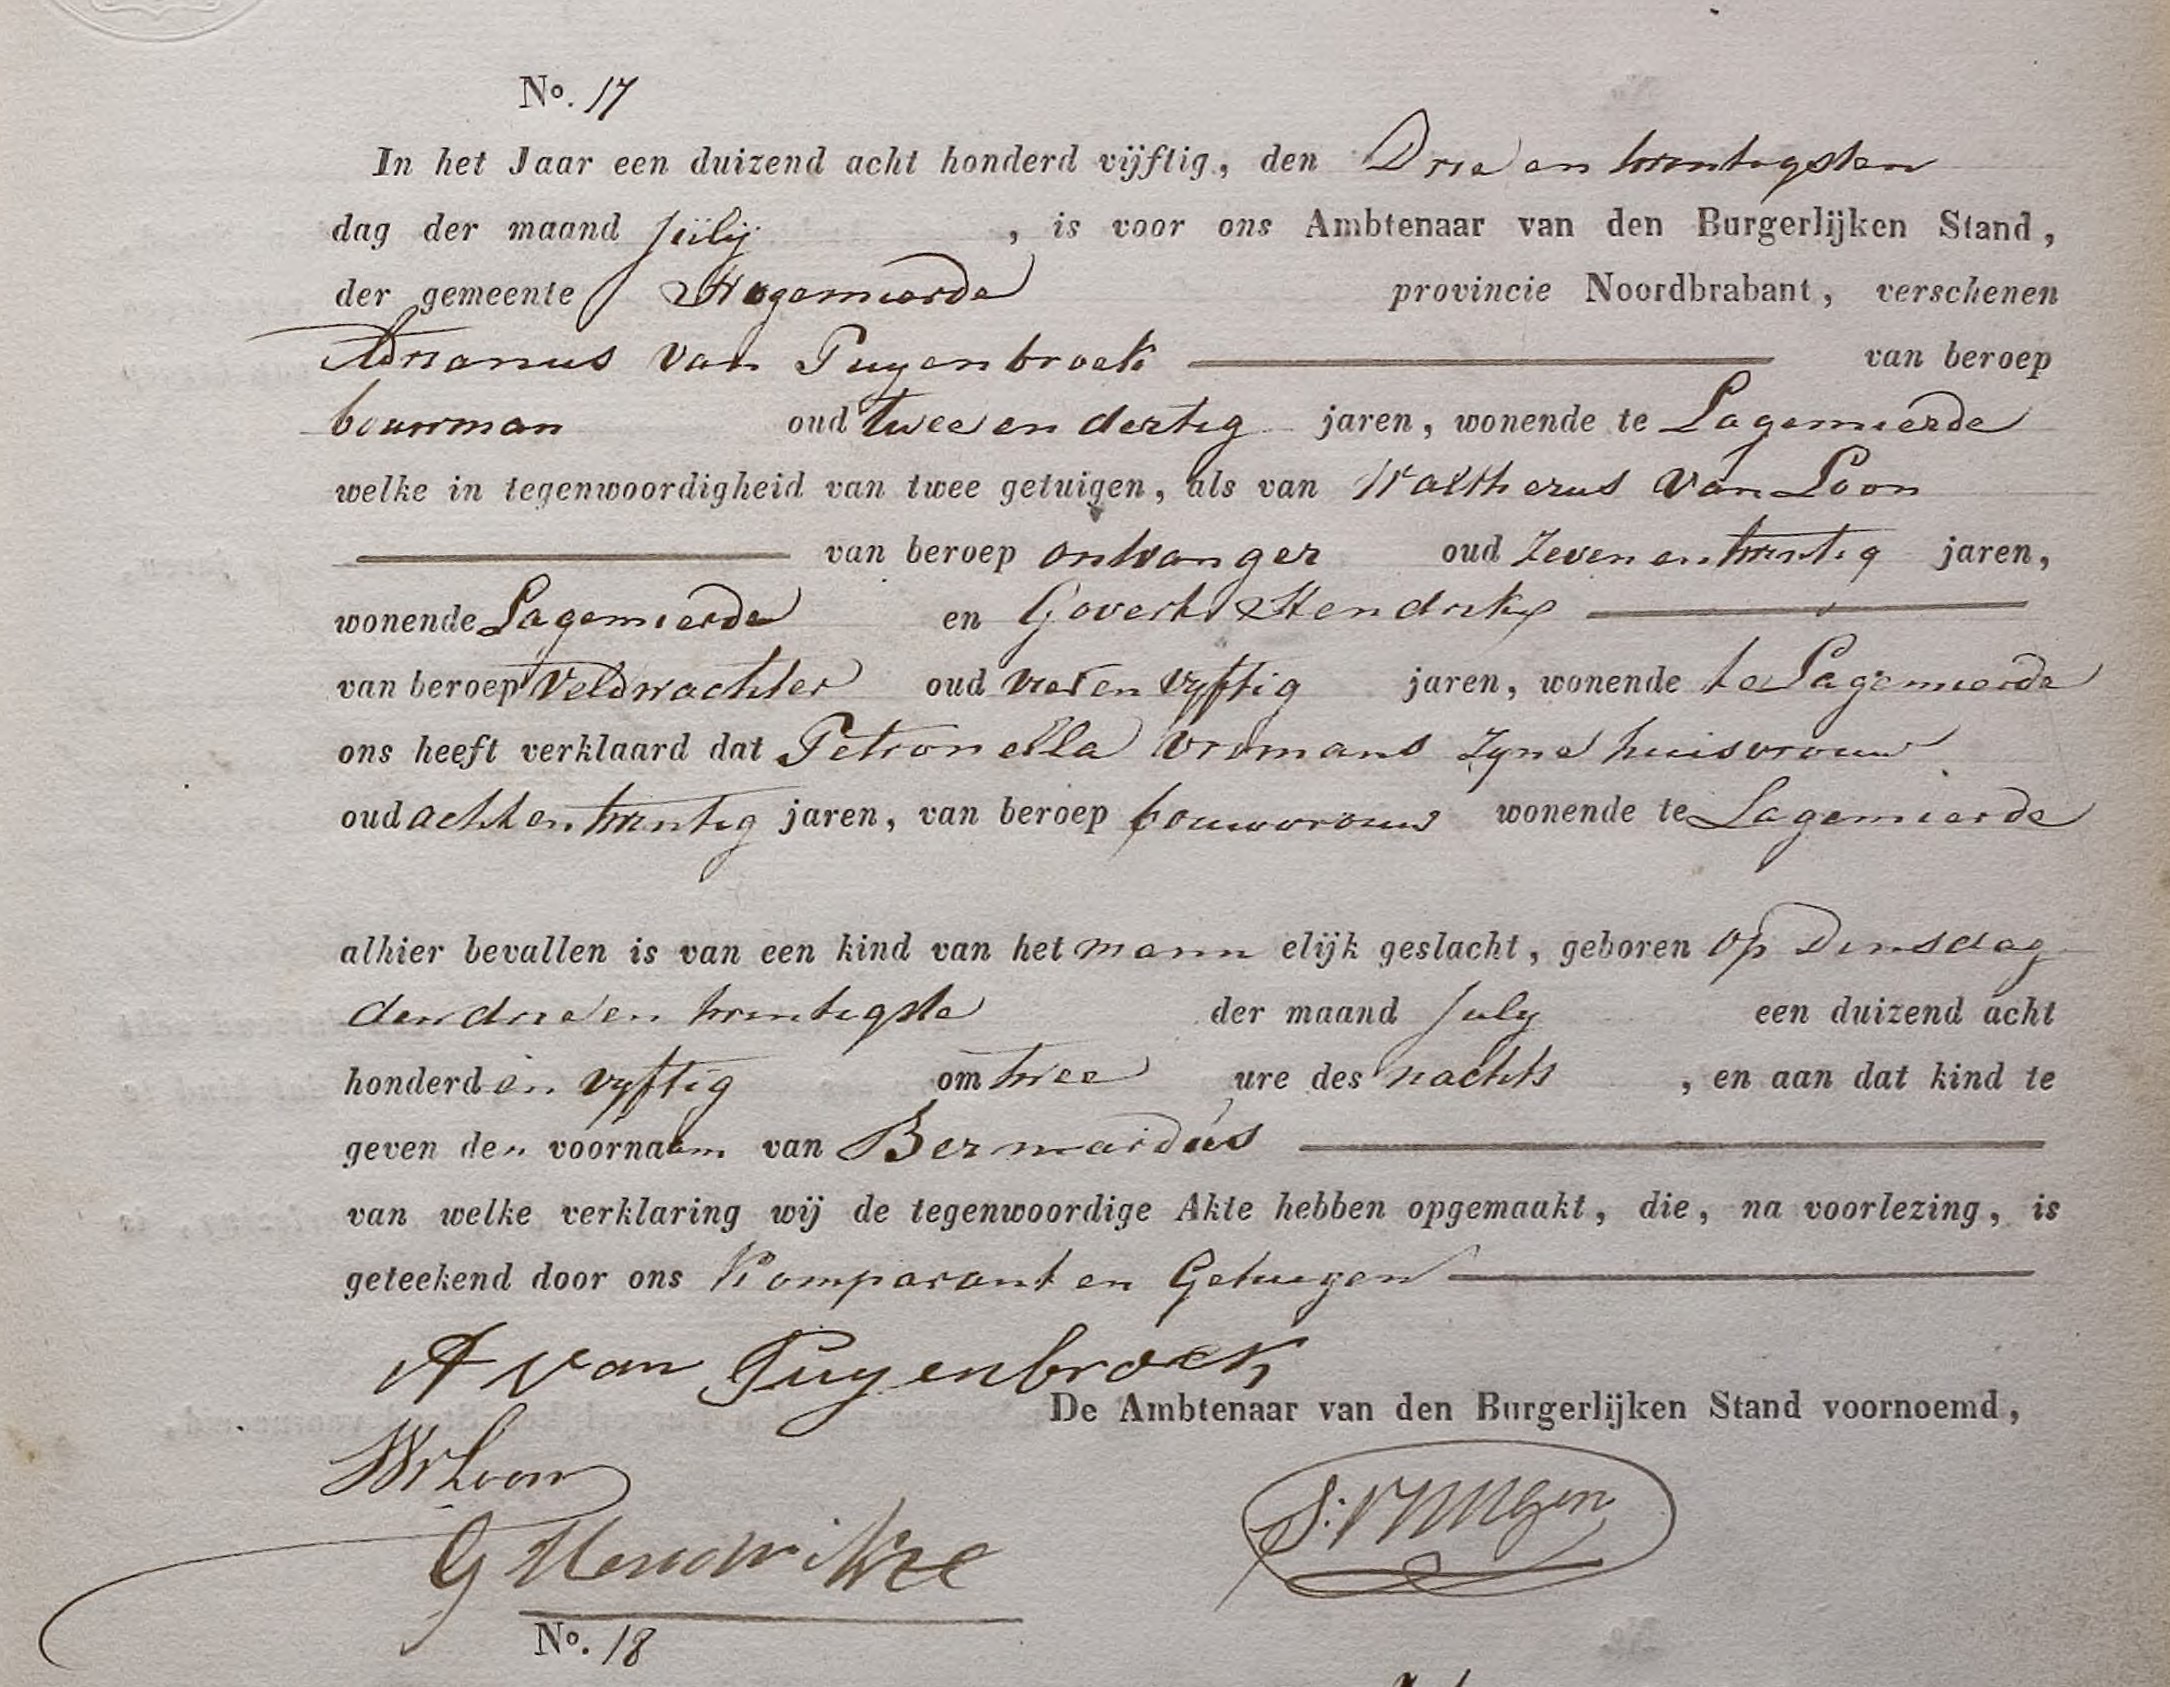 No. 17
In het Jaar een duizend acht honderd vijftig, den Drie en twintigsten
dag der maand Julij , is voor ons Ambtenaar van den Burgerlijken Stand,
der gemeente Hogemierde provincie Noordbrabant, verschenen
Adrianus van Puyenbroek van beroep
bouwman oud twee en dertig jaren, wonende te Lagemierde
welke in tegenwoordigheid van twee getuigen, als van Waltherus van Loon
van beroep ontvanger oud zeven en twintig jaren,
wonende Lagemierde en Govert Hendrikx
van beroep Veldwachter oud vier en vyftig jaren, wonende te Lagemierde
ons heeft verklaard dat Petronella Vromans zyne huisvrouw
oud acht en twintig jaren, van beroep bouwvrouw wonende te Lagemierde
alhier bevallen is van een kind van het mann elijk geslacht, geboren op Dinsdag
den drie en twintigste der maand July een duizend acht
honderd en vyftig om twee ure des nachts , en aan dat kind te
geven den voornaam van Bernardus
van welke verklaring wij de tegenwoordige Akte hebben opgemaakt, die, na voorlezing, is
geteekend door ons Komparant en Getuigen
A van Puyenbroek
De Ambtenaar van den Burgerlijken Stand voornoemd,
W v Loon
G Hendrikx
No. 18